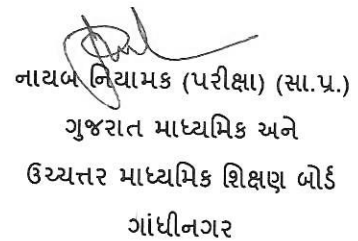 નાયબ નિયામક (પરીક્ષા) (સા.પ્ર.)
ગુજરાત માધ્યમિક અને
ઉચ્ચત્તર માધ્યમિક શિક્ષણ બોર્ડ
ગાંધીનગર